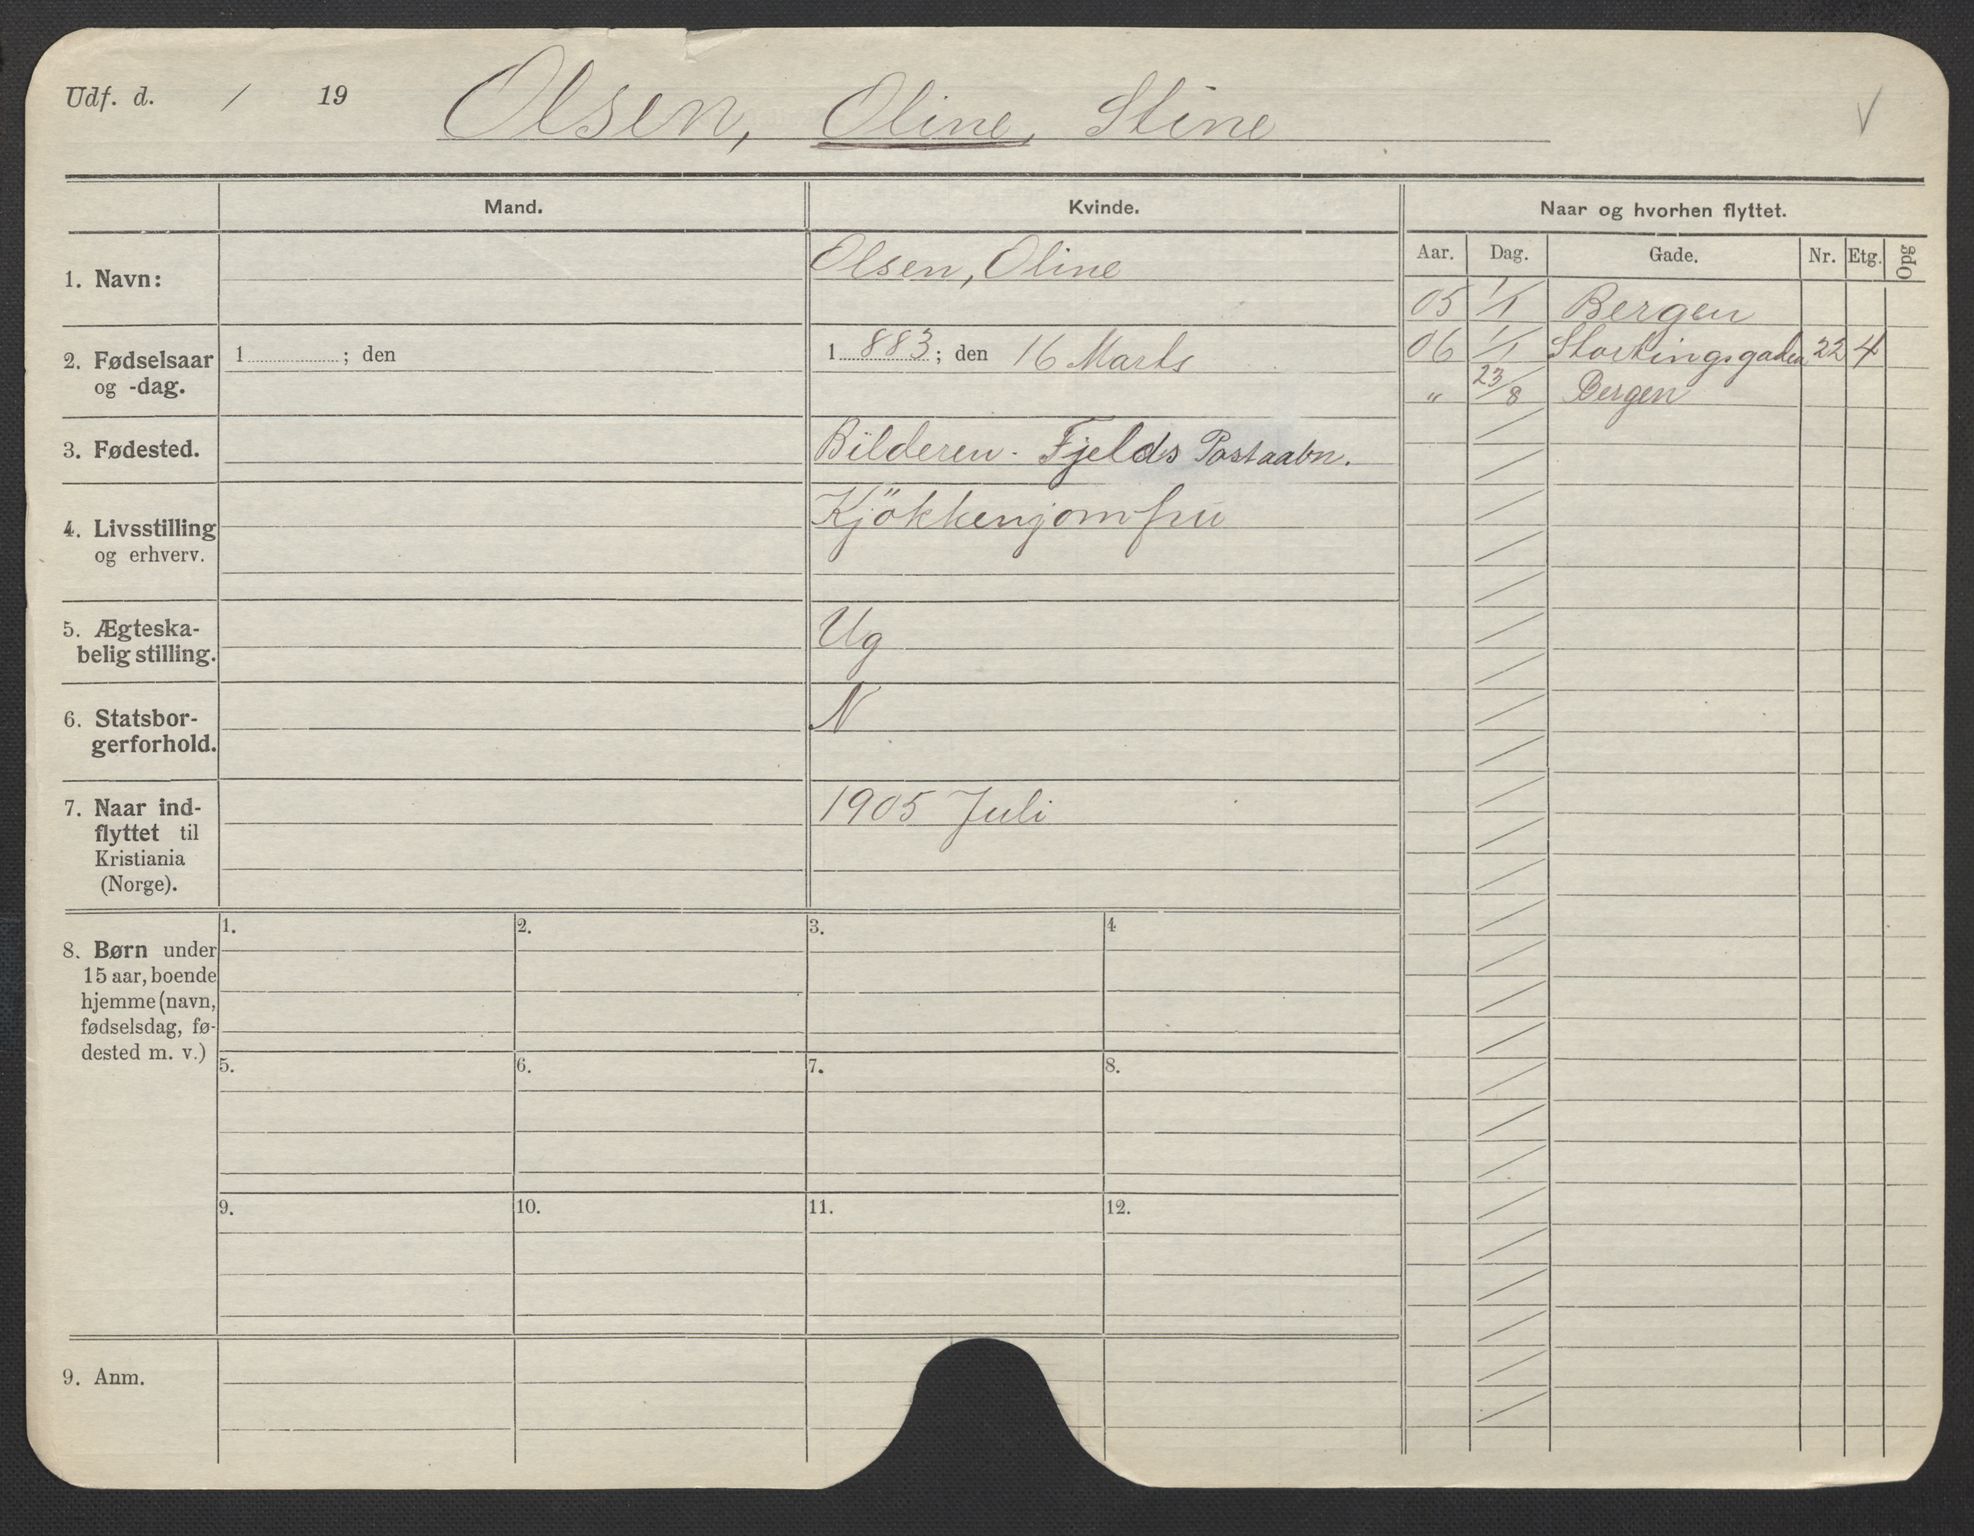 Udf. d. / 19
Olsen, Oline, Stine
V
Mand.
Kvinde.
Naar og hvorhen flyttet.
Aar. Dag. Gade. Nr. Etg. Opg
1. Navn:
Olsen, Oline
05 1/1 Bergen
06 1/1 Stortingsgaden 22 4
" 23/8 Bergen
2. Fødselsaar
og -dag.
1 ; den
1 883 ; den 16 Marts
3. Fødested.
Bilderen - Fjelds Postaabn.
4. Livsstilling
og erhverv.
Kjökkenjomfru
5. Ægteska-
belig stilling.
Ug
6. Statsbor-
gerforhold.
N
7. Naar ind-
flyttet til
Kristiania
(Norge).
1905 Juli
8. Børn under
15 aar, boende
hjemme (navn,
fødselsdag, fø-
dested m. v.)
1. 2. 3. 4
5. 6. 7. 8.
9. 10. 11. 12.
9. Anm.